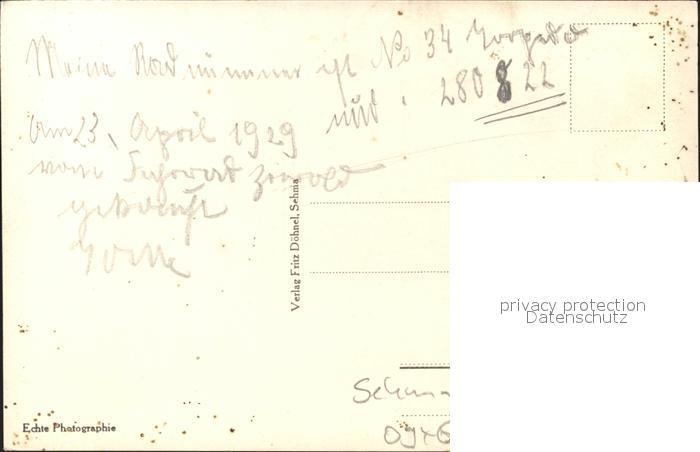 Meine Radnummer ist No 34 Torpedo
und 280822
Am 23. April 1929
vom Fahrrad
gekauft
Verlag Fritz Döhnel, Sehma
privacy protection
Datenschutz
Sehm
Echte Photographie